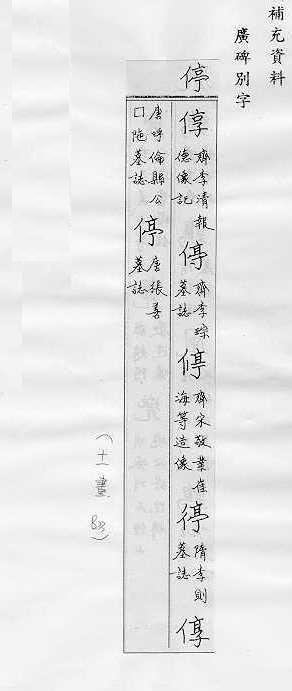 補充資料
廣碑別字
停
停 齊李清報德像記 停 齊李琮墓誌 停 齊宋敬業崔海等造像 停 隋李則墓誌 停
唐呼倫縣公□陁墓誌 停 唐張善墓誌
(十一畫 83)